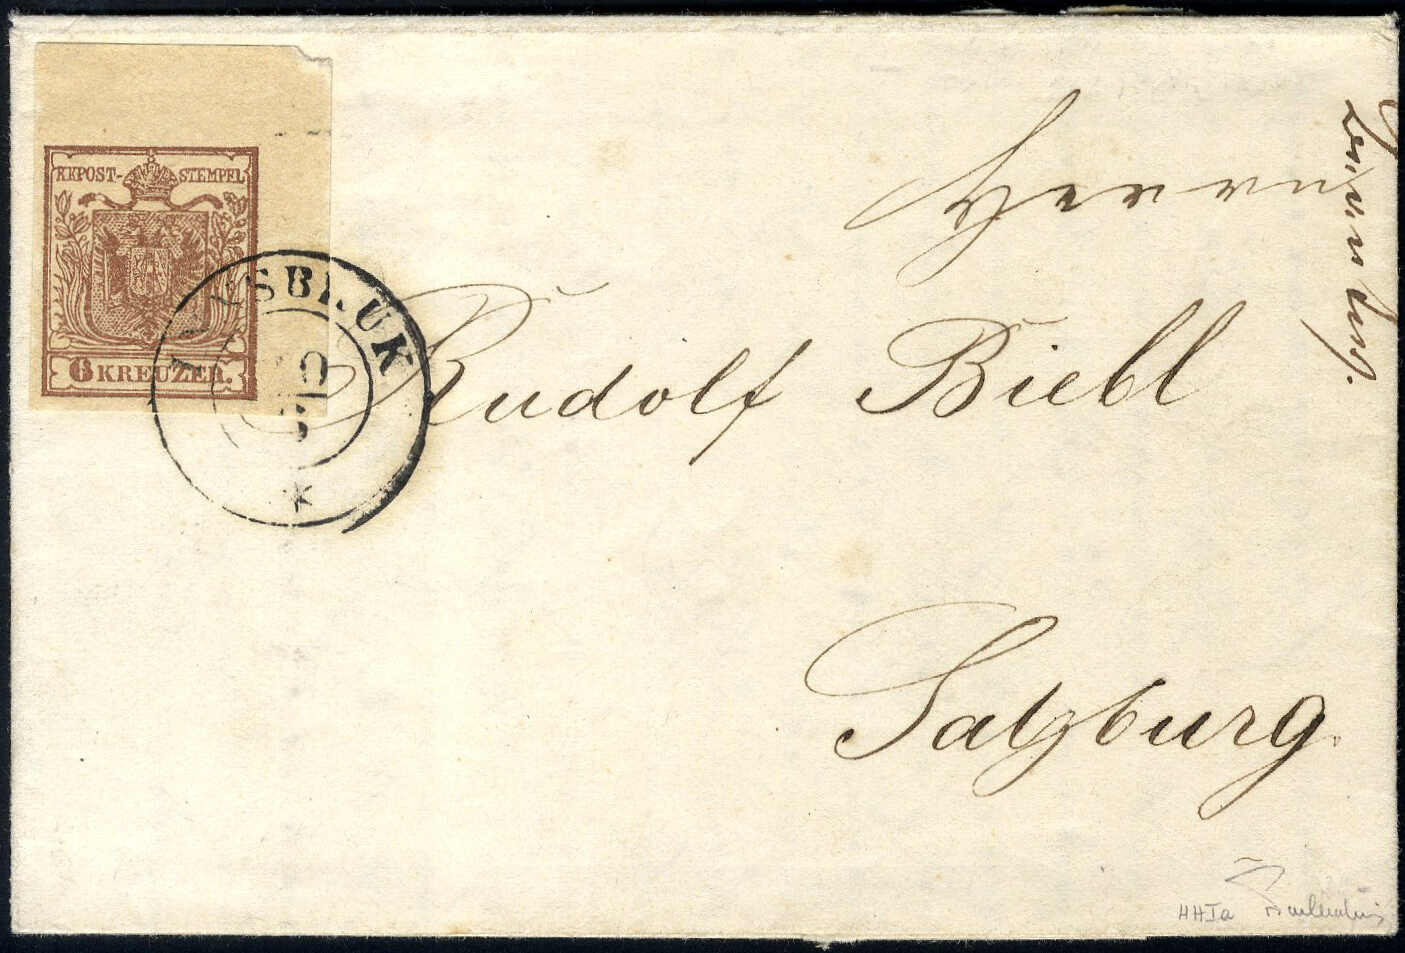 KKPOST-STEMPEL
6 KREUZER.
INNSBRUK
Herrn
Rudolf Biebl
Salzburg.
HHIa